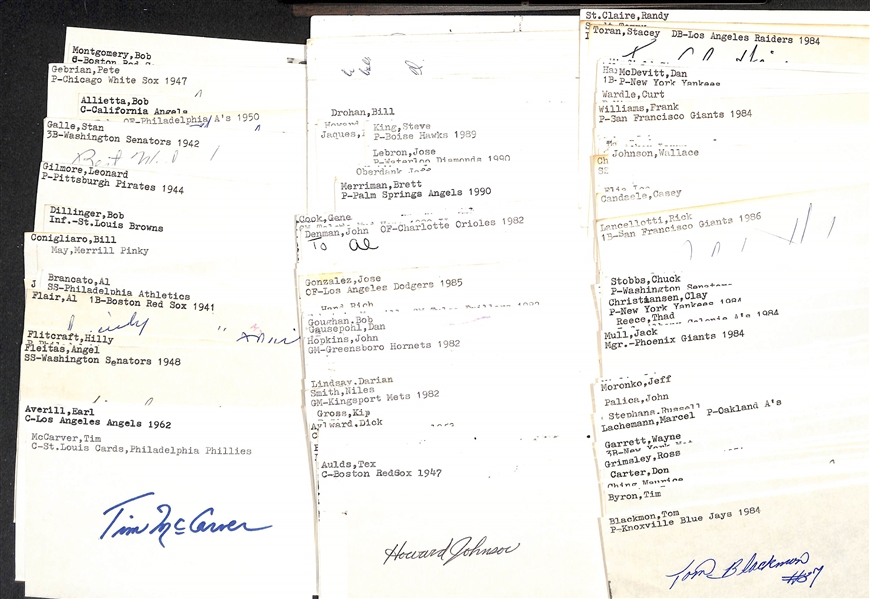 Montgomery,Bob
C-Boston Red
Gebrian,Pete
P-Chicago White Sox 1947
Allietta,Bob
C-California Angels
OF-Philadelphia A's 1950
Galle,Stan
3B-Washington Senators 1942
Best
Gilmore,Leonard
P-Pittsburgh Pirates 1944
Dillinger,Bob
Inf.-St.Louis Browns
Conigliaro,Bill
May,Merrill Pinky
Brancato,Al
J SS-Philadelphia Athletics
Flair,Al 1B-Boston Red Sox 1941
Flitcraft,Hilly
Fleitas,Angel
SS-Washington Senators 1948
Averill,Earl
C-Los Angeles Angels 1962
McCarver,Tim
C-St.Louis Cards,Philadelphia Phillies
Tim McCarver
Drohan,Bill
Howard
Jaques,
King,Steve
P-Boise Hawks 1989
Lebron,Jose
P-Waterloo Diamonds 1990
Oberdank
Merriman,Brett
P-Palm Springs Angels 1990
Cook,Gene
Denman,John OF-Charlotte Orioles 1982
To Al
Gonzalez,Jose
OF-Los Angeles Dodgers 1985
Goughan,Bob
Gausepohl,Dan
Hopkins,John
GM-Greensboro Hornets 1982
Lindsay,Darian
Smith,Niles
GM-Kingsport Mets 1982
Gross,Kip
Aylward,Dick
Aulds,Tex
C-Boston RedSox 1947
Howard Johnson
St.Claire,Randy
Toran,Stacey DB-Los Angeles Raiders 1984
McDevitt,Dan
1B P-New York Yankees
Wardle,Curt
Williams,Frank
P-San Francisco Giants 1984
Johnson,Wallace
Candaele,Casey
Lancellotti,Rick
1B-San Francisco Giants 1986
Stobbs,Chuck
P-Washington Senators
Christiansen,Clay
P-New York Yankees 1984
Reece,Thad
1984
Mull,Jack
Mgr.-Phoenix Giants 1984
Moronko,Jeff
Palica,John
Stephans,Russell
Lachemann,Marcel P-Oakland A's
Garrett,Wayne
3B-New York
Grimsley,Ross
Carter,Don
Ching,Maurice
Byron,Tim
Blackmon,Tom
P-Knoxville Blue Jays 1984
Tom Blackmon
#37